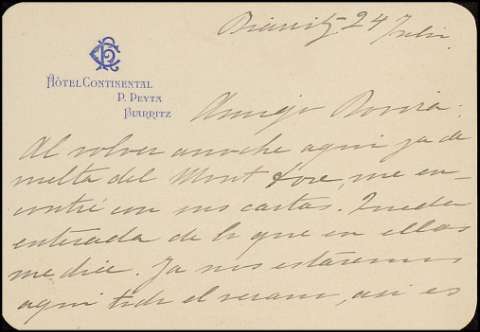 Biarritz 24 Julio.
HÔTEL CONTINENTAL
P. PEYTA
BIARRITZ
Amigo Rovira:
Al volver anoche aqui ya de
vuelta del Mont Dore, me en-
contré con sus cartas. Quedo
enterada de lo que en ellas
me dice. Ya nos estaremos
aqui todo el verano, asi es